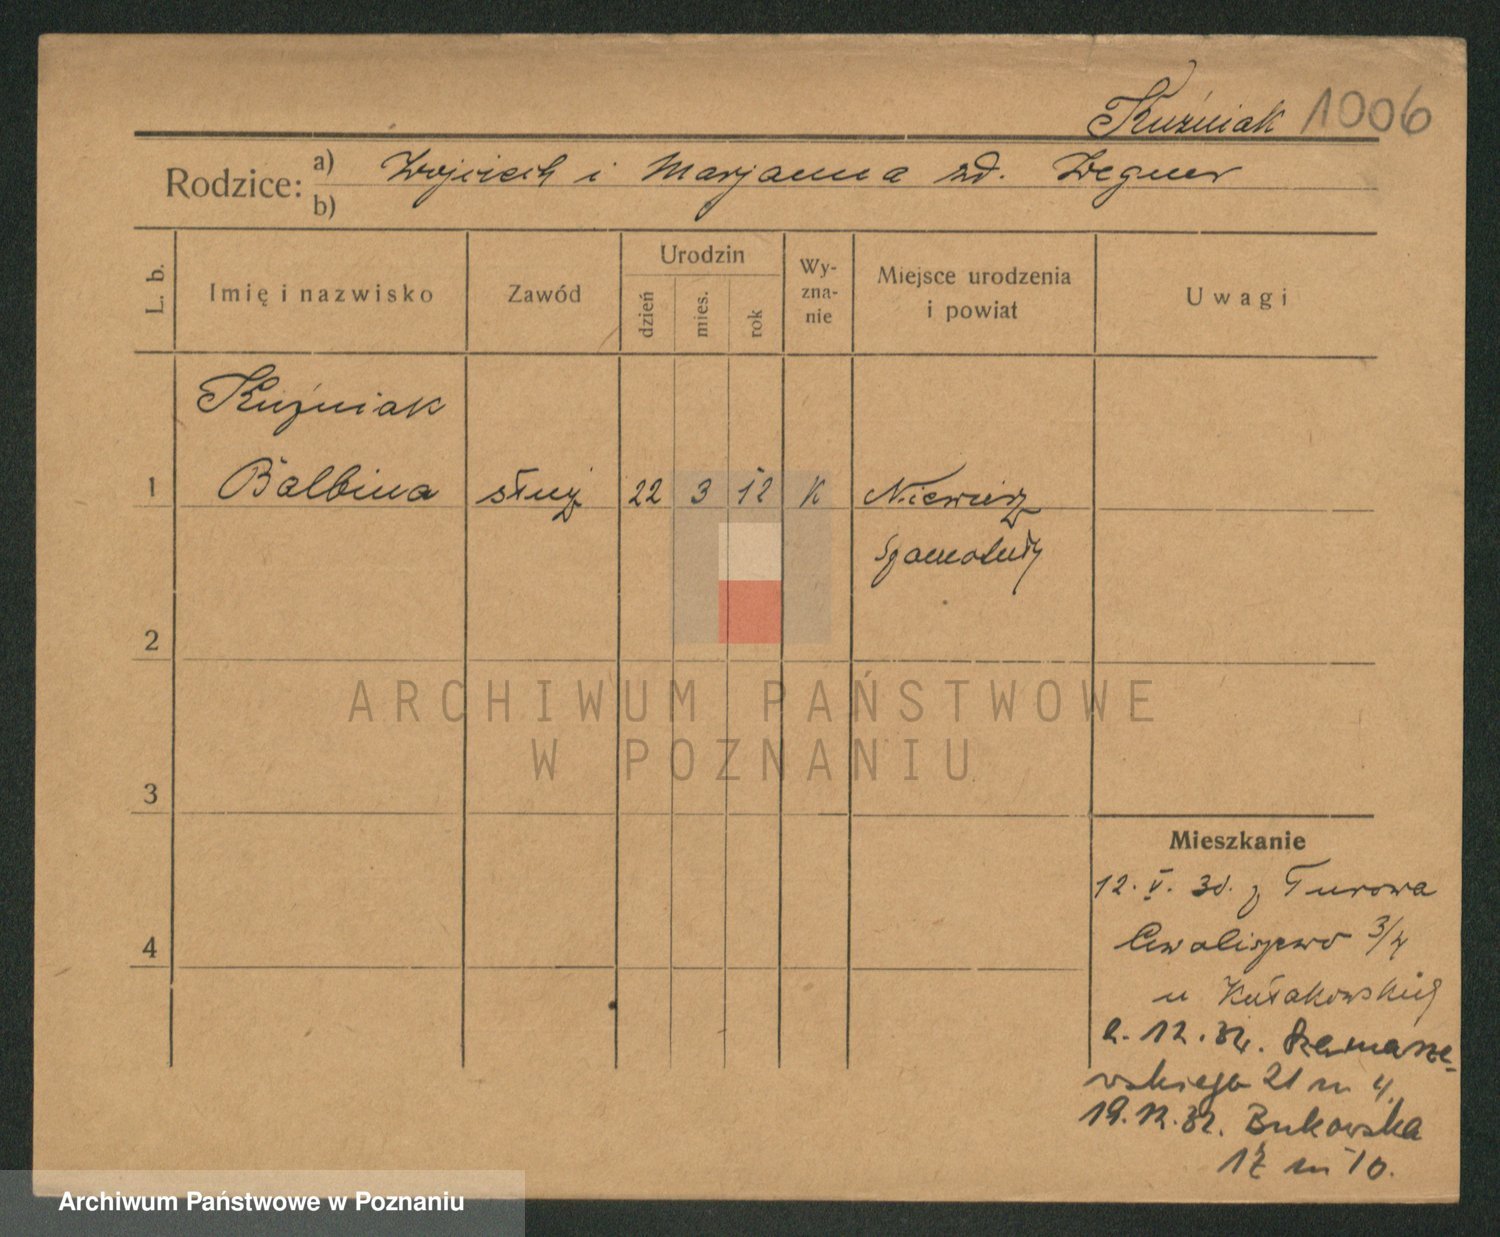 Kuźniak 1006
Rodzice: a) Wojciech i Marjanna zd. Wegner
b)
L. b.
Imię i nazwisko
Zawód
Urodzin
dzień
mies.
rok
Wy-
zna-
nie
Miejsce urodzenia
i powiat
Uwagi
Kuźniak
1 Balbina służ 22 3 12 K Niewierz
Szamotuły
2
3
4
ARCHIWUM PAŃSTWOWE
W POZNANIU
Mieszkanie
12. V. 30. z Turowa
Chwaliszewo 3/4
u Kułakowskiej
2. 12. 32. Szamarze-
wskiego 21 m 4.
19. 12. 32. Bukowska
17 m 10.
Archiwum Państwowe w Poznaniu